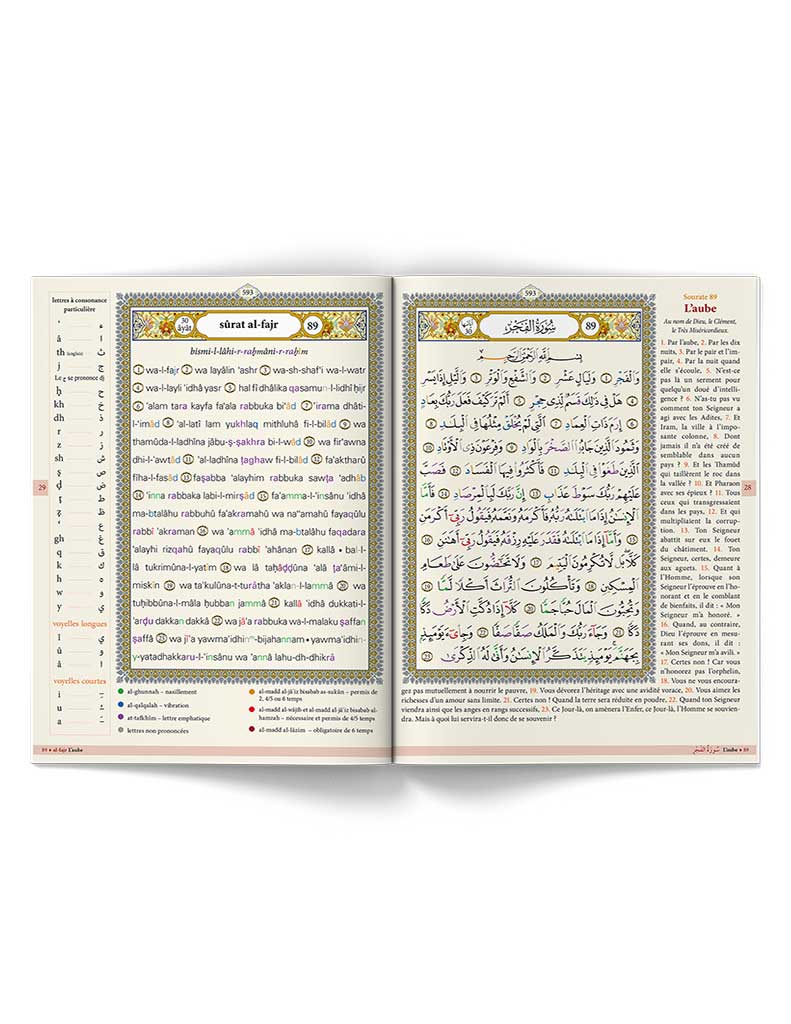 lettres à consonance
particulière
' ء
â ا
th (anglais) ث
j ج
Le ج se prononce dj
ḥ ح
kh خ
dh ذ
r ر
z ز
sh ش
ṣ ص
ḍ ض
ṭ ط
ẓ ظ
‘ ع
gh غ
q ق
k ك
h ه
w و
y ي
voyelles longues
î ي
û و
â ا
voyelles courtes
i
u
a
29
593
30
âyât
sûrat al-fajr
89
bismi-l-lâhi-r-raḥmâni-r-raḥîm
1 wa-l-fajr 2 wa layâlin ‘ashr 3 wa-sh-shaf‘i wa-l-watr
4 wa-l-layli 'idhâ yasr 5 hal fî dhâlika qasamun-l-lidhî ḥijr
6 'alam tara kayfa fa‘ala rabbuka bi‘âd 7 'irama dhâti-
l-‘imâd 8 'al-latî lam yukhlaq mithluhâ fi-l-bilâd 9 wa
thamûda-l-ladhîna jâbu-ṣ-ṣakhra bi-l-wâd 10 wa fir‘awna
dhi-l-'awtâd 11 'al-ladhîna ṭaghaw fi-l-bilâd 12 fa'aktharû
fîha-l-fasâd 13 faṣabba ‘alayhim rabbuka sawṭa ‘adhâb
14 'inna rabbaka labi-l-mirṣâd 15 fa'amma-l-'insânu 'idhâ
ma-btalâhu rabbuhû fa'akramahû wa na‘‘amahû fayaqûlu
rabbî 'akraman 16 wa 'ammâ 'idhâ ma-btalâhu faqadara
‘alayhi rizqahû fayaqûlu rabbî 'ahânan 17 kallâ • bal-l-
lâ tukrimûna-l-yatîm 18 wa lâ taḥâḍḍûna ‘alâ ṭa‘âmi-l-
miskîn 19 wa ta'kulûna-t-turâtha 'aklan-l-lammâ 20 wa
tuḥibbûna-l-mâla ḥubban jammâ 21 kallâ 'idhâ dukkati-l-
'arḍu dakkan dakkâ 22 wa jâ'a rabbuka wa-l-malaku ṣaffan
ṣaffâ 23 wa jî'a yawma'idhin-bijahannam • yawma'idhin-
y-yatadhakkaru-l-'insânu wa 'annâ lahu-dh-dhikrâ
al-ghunnah – nasillement
al-qalqalah – vibration
at-tafkhîm – lettre emphatique
lettres non prononcées
al-madd al-jâ'iz bisabab as-sukûn – permis de
2, 4/5 ou 6 temps
al-madd al-wâjib et al-madd al-jâ'iz bisabab al-
hamzah – nécessaire et permis de 4/5 temps
al-madd al-lâzim – obligatoire de 6 temps
89 • al-fajr L'aube
593
آياتها
30
سُورَةُ الفَجْرِ
89
بِسْمِ اللَّهِ الرَّحْمَٰنِ الرَّحِيمِ
وَالْفَجْرِ 1 وَلَيَالٍ عَشْرٍ 2 وَالشَّفْعِ وَالْوَتْرِ 3 وَاللَّيْلِ إِذَا يَسْرِ
4 هَلْ فِي ذَٰلِكَ قَسَمٌ لِّذِي حِجْرٍ 5 أَلَمْ تَرَ كَيْفَ فَعَلَ رَبُّكَ بِعَادٍ
6 إِرَمَ ذَاتِ الْعِمَادِ 7 الَّتِي لَمْ يُخْلَقْ مِثْلُهَا فِي الْبِلَادِ 8
وَثَمُودَ الَّذِينَ جَابُوا الصَّخْرَ بِالْوَادِ 9 وَفِرْعَوْنَ ذِي الْأَوْتَادِ 10
الَّذِينَ طَغَوْا فِي الْبِلَادِ 11 فَأَكْثَرُوا فِيهَا الْفَسَادَ 12 فَصَبَّ
عَلَيْهِمْ رَبُّكَ سَوْطَ عَذَابٍ 13 إِنَّ رَبَّكَ لَبِالْمِرْصَادِ 14 فَأَمَّا
الْإِنسَانُ إِذَا مَا ابْتَلَاهُ رَبُّهُ فَأَكْرَمَهُ وَنَعَّمَهُ فَيَقُولُ رَبِّي أَكْرَمَنِ
15 وَأَمَّا إِذَا مَا ابْتَلَاهُ فَقَدَرَ عَلَيْهِ رِزْقَهُ فَيَقُولُ رَبِّي أَهَانَنِ 16
كَلَّا بَل لَّا تُكْرِمُونَ الْيَتِيمَ 17 وَلَا تَحَاضُّونَ عَلَىٰ طَعَامِ
الْمِسْكِينِ 18 وَتَأْكُلُونَ التُّرَاثَ أَكْلًا لَّمًّا 19
وَتُحِبُّونَ الْمَالَ حُبًّا جَمًّا 20 كَلَّا إِذَا دُكَّتِ الْأَرْضُ دَكًّا
دَكًّا 21 وَجَاءَ رَبُّكَ وَالْمَلَكُ صَفًّا صَفًّا 22 وَجِيءَ يَوْمَئِذٍ
بِجَهَنَّمَ يَوْمَئِذٍ يَتَذَكَّرُ الْإِنسَانُ وَأَنَّىٰ لَهُ الذِّكْرَىٰ 23
Sourate 89
L'aube
Au nom de Dieu, le Clément,
le Très Miséricordieux.
1. Par l'aube, 2. Par les dix
nuits, 3. Par le pair et l'im-
pair, 4. Par la nuit quand
elle s'écoule, 5. N'est-ce
pas là un serment pour
quelqu'un doué d'intelli-
gence ? 6. N'as-tu pas vu
comment ton Seigneur a
agi avec les Adites, 7. Et
Iram, la ville à l'impo-
sante colonne, 8. Dont
jamais il n'a été créé de
semblable dans aucun
pays ? 9. Et les Thamûd
qui taillèrent le roc dans
la vallée ? 10. Et Pharaon
avec ses épieux ? 11. Tous
ceux qui transgressaient
dans les pays, 12. Et qui
multipliaient la corrup-
tion. 13. Ton Seigneur
abattit sur eux le fouet
du châtiment. 14. Ton
Seigneur, certes, demeure
aux aguets. 15. Quant à
l'Homme, lorsque son
Seigneur l'éprouve en l'ho-
norant et en le comblant
de bienfaits, il dit : « Mon
Seigneur m'a honoré. »
16. Quand, au contraire,
Dieu l'éprouve en mesu-
rant ses dons, il dit :
« Mon Seigneur m'a avili. »
17. Certes non ! Car vous
n'honorez pas l'orphelin,
18. Vous ne vous encoura-
gez pas mutuellement à nourrir le pauvre, 19. Vous dévorez l'héritage avec une avidité vorace, 20. Vous aimez les
richesses d'un amour sans limite. 21. Certes non ! Quand la terre sera réduite en poudre, 22. Quand ton Seigneur
viendra ainsi que les anges en rangs successifs, 23. Ce Jour-là, on amènera l'Enfer, ce Jour-là, l'Homme se souvien-
dra. Mais à quoi lui servira-t-il donc de se souvenir ?
28
سُورَةُ الفَجْر L'aube • 89